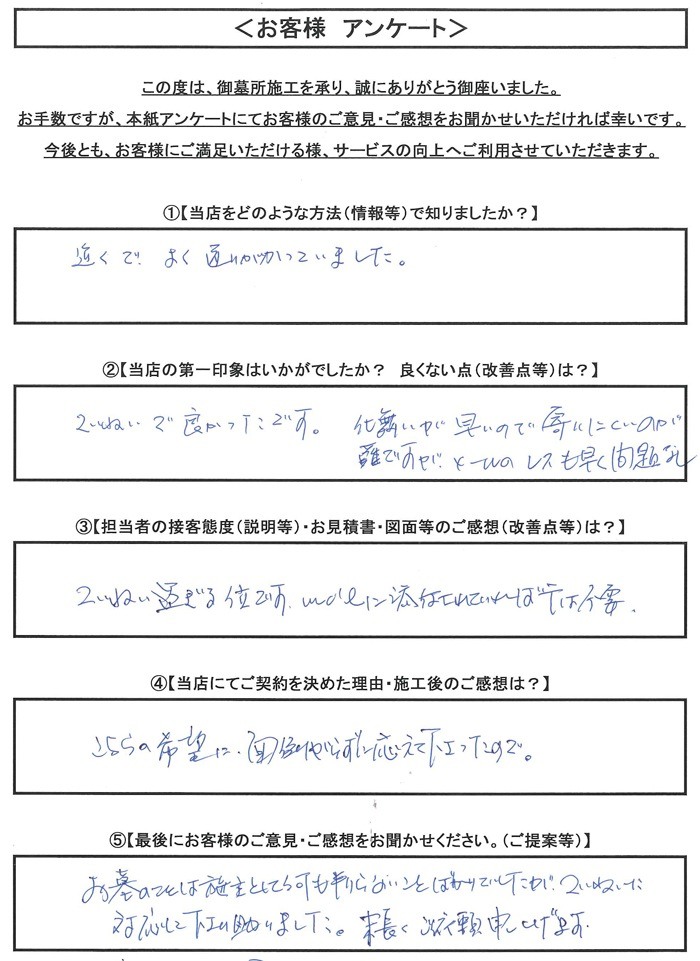 ＜お客様　アンケート＞
この度は、御墓所施工を承り、誠にありがとう御座いました。
お手数ですが、本紙アンケートにてお客様のご意見・ご感想をお聞かせいただければ幸いです。
今後とも、お客様にご満足いただける様、サービスの向上へご利用させていただきます。
①【当店をどのような方法（情報等）で知りましたか？】
近くで よく通りがかっていました。
②【当店の第一印象はいかがでしたか？　良くない点（改善点等）は？】
ていねいで良かったです。 仕舞いが早いので寄りにくいのが
難ですが、メールのレスも早く問題なし
③【担当者の接客態度（説明等）・お見積書・図面等のご感想（改善点等）は？】
ていねい過ぎる位です。 に添付されていれば は不要.
④【当店にてご契約を決めた理由・施工後のご感想は？】
こちらの希望に、面倒がらずに応えて下さったので。
⑤【最後にお客様のご意見・ご感想をお聞かせください。（ご提案等）】
お墓のことは施主として何も判らないことばかりでしたが、ていねいに
対応して下さり助かりました。末長く 依頼申し上げます.